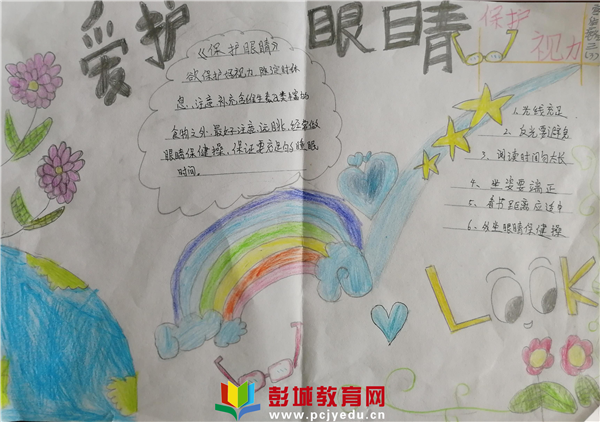 爱护眼睛
保护
视力
《保护眼睛》
欲保护好视力,除定时休
息、注意补充含维生素A类丰富的
食物之外,最好注意远眺,经常做
眼睛保健操,保证要充足的睡眠
时间。
1、光线充足
2、反光要避免
3、阅读时间勿太长
4、坐姿要端正
5、看书距离应适中
6、做眼睛保健操
LOOK
彭城教育网
www.pcjyedu.cn